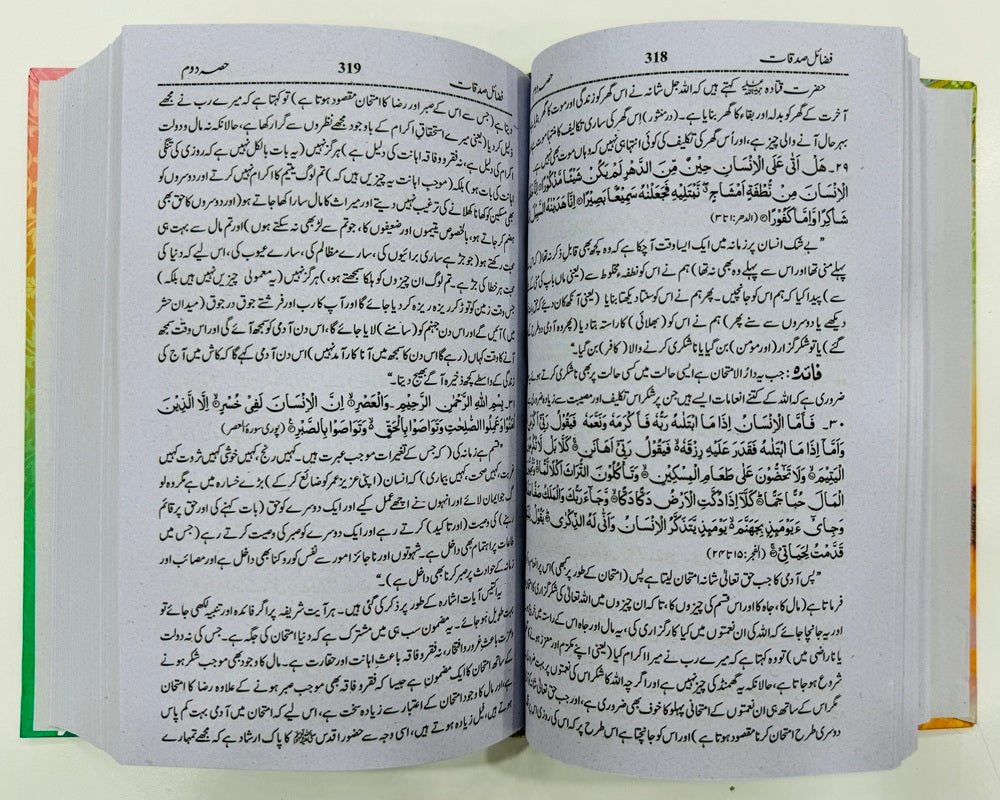 فضائل صدقات 318 حصہ دوم
حضرت قتادہ ﷺ کہتے ہیں کہ اللہ جل شانہ نے اس گھر کو زندگی اور موت کا گھر بنایا
آخرت کے گھر کو بدلہ اور بقاء کا گھر بنایا ہے۔ (درمنثور) اِس گھر کی ساری تکالیف کا منتہا موت
بہرحال آنے والی چیز ہے، اور اُس گھر کی تکلیف کی کوئی انتہا ہی نہیں کہ وہاں موت بھی نہیں ہے۔
۲۹۔ هَلْ اَتٰى عَلَى الْاِنْسَانِ حِيْنٌ مِّنَ الدَّهْرِ لَمْ يَكُنْ شَيْئًا مَّذْكُوْرًا ۞
الْاِنْسَانَ مِنْ نُّطْفَةٍ اَمْشَاجٍ ۖ نَّبْتَلِيْهِ فَجَعَلْنٰهُ سَمِيْعًا بَصِيْرًا ۞ اِنَّا هَدَيْنٰهُ السَّبِيْلَ
شَاكِرًا وَّاِمَّا كَفُوْرًا ۞ (الدهر: ۱ تا ۳)
”بے شک انسان پر زمانہ میں ایک ایسا وقت آچکا ہے کہ وہ کچھ بھی قابلِ ذکر نہ تھا (کہ اس
پہلے منی تھا اور اس سے پہلے وہ بھی نہ تھا) ہم نے اس کو نطفۂ مخلوط سے (یعنی ماں باپ کی
سے) پیدا کیا کہ ہم اس کو جانچیں۔ پھر ہم نے اس کو سنتا دیکھتا بنایا (یعنی آنکھ کان دیے کہ
دیکھے یا دوسروں سے سنے پھر) ہم نے اس کو (بھلائی) کا راستہ بتا دیا (پھر وہ آدمی دو طرح
گئے) یا تو شکر گزار (اور مومن) بن گیا یا ناشکری کرنے والا (کافر) بن گیا۔“
فائدہ: جب یہ دارُ الامتحان ہے ایسی حالت میں کسی حالت پر بھی ناشکری کرنے
ضروری ہے کہ اللہ کے کتنے انعامات ایسے ہیں جن پر شکر اس تکالیف اور مصیبت سے زیادہ
۳۰۔ فَاَمَّا الْاِنْسَانُ اِذَا مَا ابْتَلٰىهُ رَبُّهٗ فَاَكْرَمَهٗ وَنَعَّمَهٗ فَيَقُوْلُ رَبِّيْٓ
وَاَمَّآ اِذَا مَا ابْتَلٰىهُ فَقَدَرَ عَلَيْهِ رِزْقَهٗ ۞ فَيَقُوْلُ رَبِّيْٓ اَهَانَنِ ۞ كَلَّا بَلْ لَّا
الْيَتِيْمَ ۞ وَلَا تَحٰٓضُّوْنَ عَلٰى طَعَامِ الْمِسْكِيْنِ ۞ وَتَاْكُلُوْنَ التُّرَاثَ اَكْلًا لَّمًّا ۞
الْمَالَ حُبًّا جَمًّا ۞ كَلَّآ اِذَا دُكَّتِ الْاَرْضُ دَكًّا دَكًّا ۞ وَّجَآءَ رَبُّكَ وَالْمَلَكُ صَفًّا
وَجِايْٓءَ يَوْمَئِذٍ بِجَهَنَّمَ ۞ يَوْمَئِذٍ يَّتَذَكَّرُ الْاِنْسَانُ وَاَنّٰى لَهُ الذِّكْرٰى ۞ يَقُوْلُ
قَدَّمْتُ لِحَيَاتِيْ ۞ (الفجر: ۱۵ تا ۲۴)
”پس آدمی کا جب حق تعالیٰ شانہ امتحان لیتا ہے پس (امتحان کے طور پر بھی) اس پر
فرماتا ہے (مال کا، جاہ کا اور اس قسم کی چیزوں کا، تا کہ ان چیزوں میں اللہ تعالیٰ کی شکر گزاری
اور یہ جانچا جائے کہ اللہ کی ان نعمتوں میں کیا کار گزاری کی، یہ مال اور جاہ اس کے راستہ میں
یا ناراضی میں) تو وہ کہتا ہے کہ میرے رب نے میرا اکرام کیا (یعنی اپنے مکرم اور معزز
شروع ہو جاتا ہے، حالانکہ یہ گھمنڈ کی چیز نہیں ہے اور اگرچہ اللہ کا شکر اس کی نعمتوں پر بہت
مگر اس کے ساتھ ہی ان نعمتوں کے امتحانی پہلو کا خوف بھی ضروری ہے، اور جب حق تعالیٰ شانہ
دوسری طرح امتحان کرنا مقصود ہوتا ہے) اور اس کو جانچتا ہے اس طرح پر کہ اس کی روزی
فضائل صدقات 319 حصہ دوم
دیتا ہے (جس سے اس کے صبر اور رضا کا امتحان مقصود ہوتا ہے) تو کہتا ہے کہ میرے رب نے مجھے
ذلیل کر دیا (یعنی میرے استحقاقِ اکرام کے باوجود مجھے نظروں سے گرا رکھا ہے، حالانکہ نہ مال و دولت
اکرام کی دلیل ہے، نہ فقر و فاقہ اہانت کی دلیل ہے) ہرگز نہیں (یہ بات بالکل نہیں ہے کہ روزی کی تنگی
اہانت کی بات ہو) بلکہ (موجب اہانت یہ چیزیں ہیں کہ) تم لوگ یتیم کا اکرام نہیں کرتے اور دوسروں کو
بھی مسکین کو کھانا کھلانے کی ترغیب نہیں دیتے اور میراث کا مال سارا کھا جاتے ہو (اور دوسروں کا حق بھی
ہضم کر جاتے ہو، بالخصوص یتیموں اور ضعیفوں کا، جو تم سے لڑ بھی نہ سکتے ہوں) اور تم مال سے بہت ہی
محبت رکھتے ہو (جو جڑ ہے ساری برائیوں کی، سارے مظالم کی، سارے عیوب کی، اس لیے کہ دنیا کی
محبت ہر خطا کی جڑ ہے۔ تم لوگ ان چیزوں کو ہلکا سمجھتے ہو)، ہرگز نہیں (یہ معمولی چیزیں نہیں ہیں بلکہ)
جس وقت زمین کو توڑ کر ریزہ ریزہ کر دیا جائے گا اور آپ کا رب اور فرشتے جوق در جوق (میدانِ حشر
میں) آئیں گے اور اس دن جہنم کو (سامنے) لایا جائے گا، اس دن آدمی کو سمجھ آئے گی اور اس وقت سمجھ
آنے کا وقت کہاں (رہے گا اس دن کا سمجھ میں آنا کارآمد نہیں) اس دن آدمی کہے گا کہ کاش میں آج کی
زندگی کے واسطے کچھ ذخیرہ آگے بھیج دیتا۔“
۳۱۔ بِسْمِ اللهِ الرَّحْمٰنِ الرَّحِيْمِ۔ وَالْعَصْرِ ۞ اِنَّ الْاِنْسَانَ لَفِيْ خُسْرٍ ۞ اِلَّا الَّذِيْنَ
اٰمَنُوْا وَعَمِلُوا الصّٰلِحٰتِ وَتَوَاصَوْا بِالْحَقِّ ۞ وَتَوَاصَوْا بِالصَّبْرِ ۞ (پوری سورۃ العصر)
”قسم ہے زمانہ کی (کہ جس کے تغیرات موجب عبرت ہیں۔ کہیں رنج، کہیں خوشی کہیں ثروت کہیں
غربت، کہیں صحت، کہیں بیماری) کہ انسان (اپنی عزیز عمر کو ضائع کر کے) بڑے خسارہ میں ہے مگر وہ لوگ
جو ایمان لائے اور انہوں نے اچھے عمل کیے اور ایک دوسرے کو حق (بات کہنے کی اور حق پر قائم
رہنے) کی وصیت (اور تاکید) کرتے رہے اور ایک دوسرے کو صبر کی وصیت کرتے رہے (جس میں
طاعات پر اہتمام بھی داخل ہے۔ شہوتوں اور ناجائز امور سے نفس کو روکنا بھی داخل ہے اور مصائب اور
زمانہ کے حوادث پر صبر کرنا بھی داخل ہے)۔“
یہ اکتیس آیات اشارہ کے طور پر ذکر کی گئی ہیں۔ ہر آیت شریفہ پر اگر فائدہ اور تنبیہ لکھی جائے تو
بہت طویل ہو جائے۔ یہ مضمون سب ہی میں مشترک ہے کہ دنیا امتحان کی جگہ ہے۔ جس کی نہ دولت
و عزت باعث غرور و افتخار، نہ فقر و فاقہ باعث اہانت اور حقارت ہے۔ مال کا وجود بھی موجب شکر ہونے
کے ساتھ امتحان کا ایک مضمون ہے جیسا کہ فقر و فاقہ بھی موجب صبر ہونے کے علاوہ رضا کا امتحان
ہے، اور مال کا وجود امتحان کے اعتبار سے زیادہ سخت ہے، اس لیے کہ امتحان میں آدمی بہت کم پاس
ہوتے ہیں، فیل زیادہ ہوتے ہیں، اسی وجہ سے حضور اقدس ﷺ کا پاک ارشاد ہے کہ مجھے تمہارے